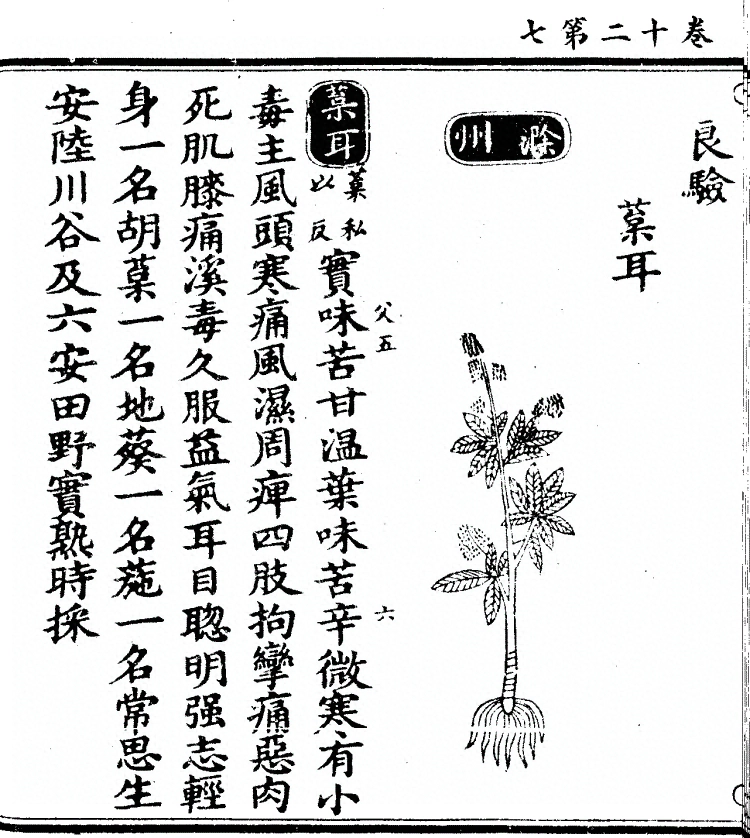 卷十二第七
良驗
葈耳
滁州
父五
六
葈耳葈私以反實味苦甘温葉味苦辛微寒有小
毒主風頭寒痛風濕周痺四肢拘攣痛惡肉
死肌膝痛溪毒久服益氣耳目聦明强志輕
身一名胡葈一名地葵一名葹一名常思生
安陸川谷及六安田野實熟時採